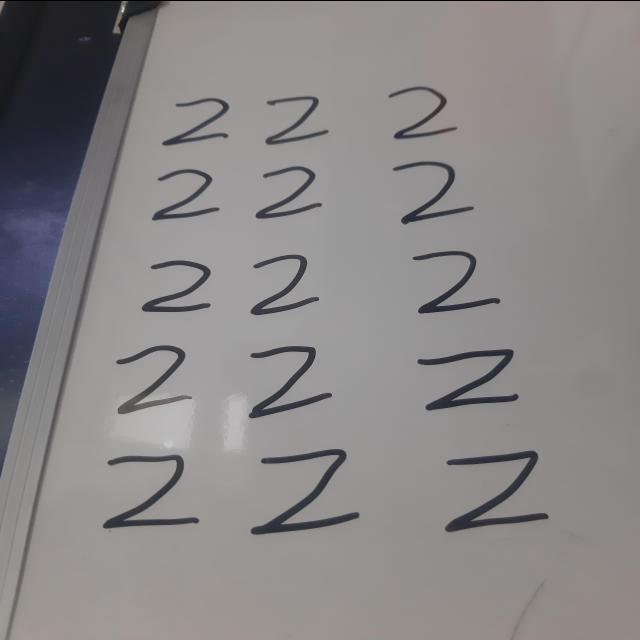 2 2 2
2 2 2
2 2 2
2 2 2
2 2 2